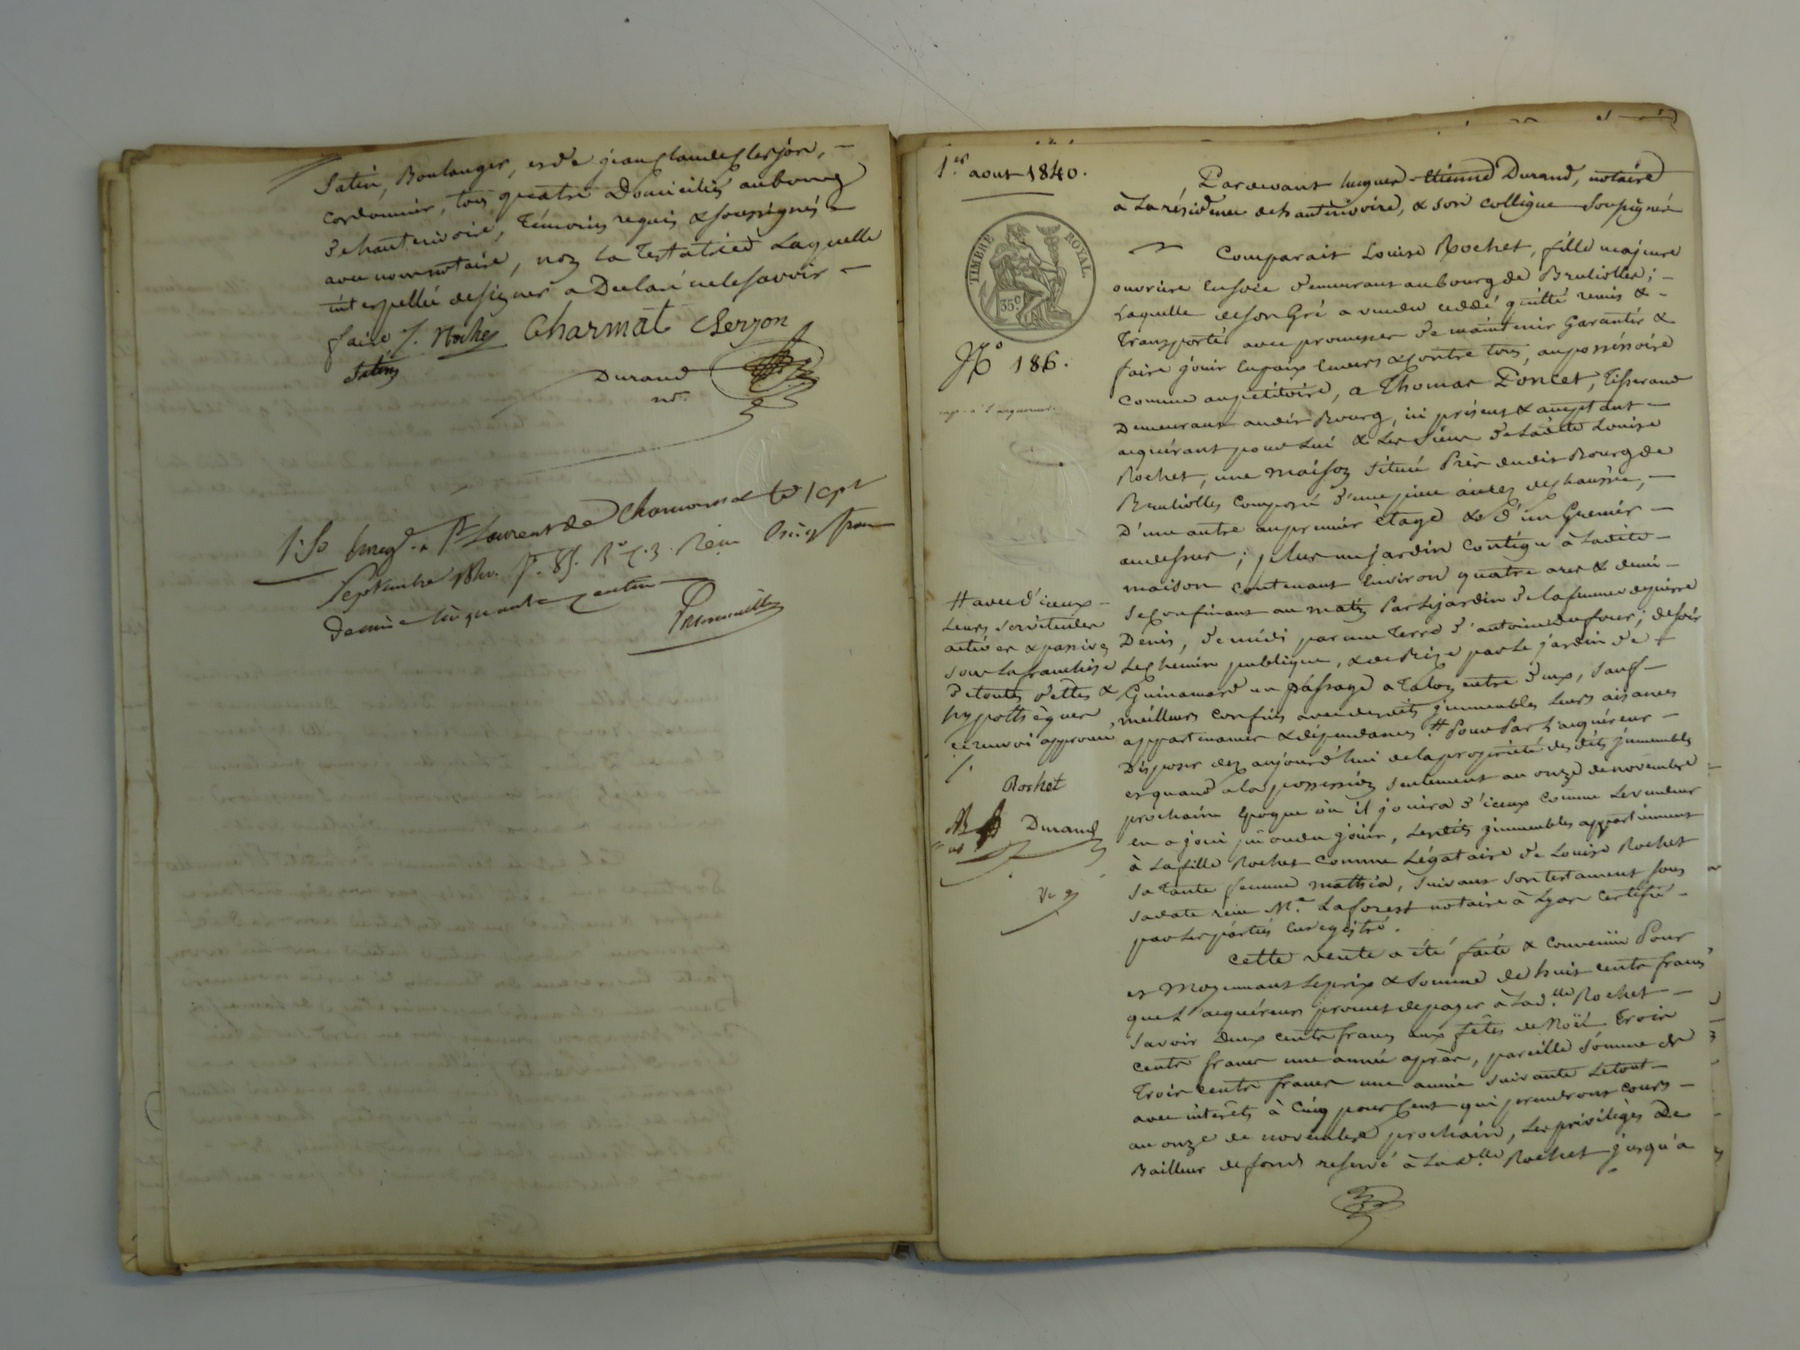 Satin, Boulanger, et de jean Claude Clerjon, -
cordonnier, tous quatre Domiciliés au bourg
de hauterivoire, Témoins requis & soussignés -
avec nous notaire, non la Testatrice Laquelle
interpellée de signer a Déclaré ne le savoir -
faire /. Charmat Clerjon
Satin
Durand
nre.
Enregé. à St Laurent de Chamousset le sept
Septembre 1840. fo. 85. Ro. C. 3. Reçu cinq francs
Décime cinquante centimes
1.er aout 1840.
TIMBRE ROYAL.
35c
No 186.
# avec d'iceux -
Leurs servitudes
actives & passives
sous la franchise
de toutes dettes &
hypothèques,
ce renvoi approuvé
/.
Rochet
Durand
Pardevant hugues-Etienne Durand, notaire
à La résidence de hauterivoire, & son collègue soussignés
Comparait Louise Rochet, fille majeure
ouvrière En soie demeurant au bourg de Brullioles; -
Laquelle de son Gré a vendu cédé quitté remis & -
Transporté avec promesse de maintenir Garantir &
faire jouir En paix Envers & contre tous, au possessoire
comme au pétitoire, a Thomas Poncet, Tisserand
Demeurant audit Bourg, ici présent & acceptant -
acquérant pour Lui & Les siens de Ladite Louise
Rochet, une maison située Près dudit Bourg de
Brullioles composée d'une pièce au rez de chaussée, -
D'une autre au premier étage & d'un Grenier -
au dessus; plus un jardin contigu à Ladite -
maison contenant Environ quatre ares & demi -
se Confinant au matin Par Le jardin de la femme de pierre
Denis, de midi par une Terre d'antoine Dufour; de soir
Le Chemin publique, & de Bize par Le jardin de
Guinamard un passage a Talon entre d'eux, sauf -
meilleurs confins avec desdits jmmeubles Leurs aisances
appartenances & dépendances # Pour Par L'acquéreur -
Disposer dez aujourd'hui de la propriété desdits jmmeubles
et quand a la possession seulement au onze de novembre
prochain Epoque où il jouira d'iceux comme Le vendeur
en a joui ou dû jouir, Lesdits jmmeubles appartiennent
à La fille Rochet comme Légataire de Louise Rochet
sa Tante femme mathia, suivant son testament sous
sa date reçu Me Laforest notaire à Lyon certifié -
par Les parties Enregistré.
Cette vente a été faite & convenüe Pour
et Moyennant Le prix & Somme de huit cents francs
que L'acquéreur promet de payer à La dlle Rochet -
savoir Deux cents francs aux fêtes de Noël Trois
cents francs une année après, pareille somme de
Trois cents francs une année suivante Le tout -
avec intérêts à Cinq pour Cent qui prendront cours -
au onze de novembre prochain, Les privilèges De
Bailleur de fonds reservé à La dlle Rochet jusqu'à